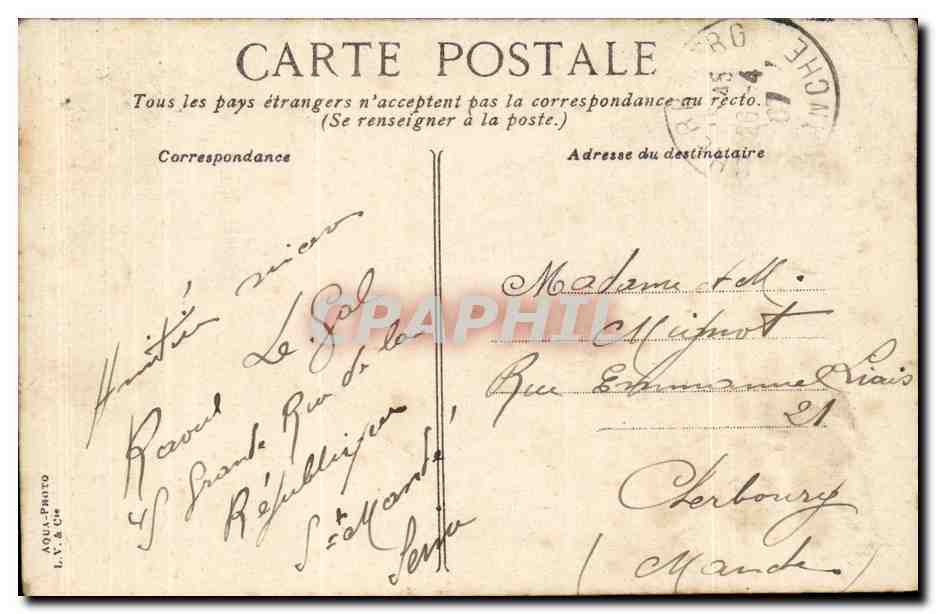 CARTE POSTALE
Tous les pays étrangers n'acceptent pas la correspondance au recto.
(Se renseigner à la poste.)
Correspondance
Amitié
Raoul Le Gal
45 Grande Rue de la
République
St Mandé
Seine
AQUA-PHOTO
L. V. & Cie
Adresse du destinataire
Madame & M.
Mignot
Rue Emmanuel Liais
21
Cherbourg
(Manche)
CPAPHIL
MANCHE
07